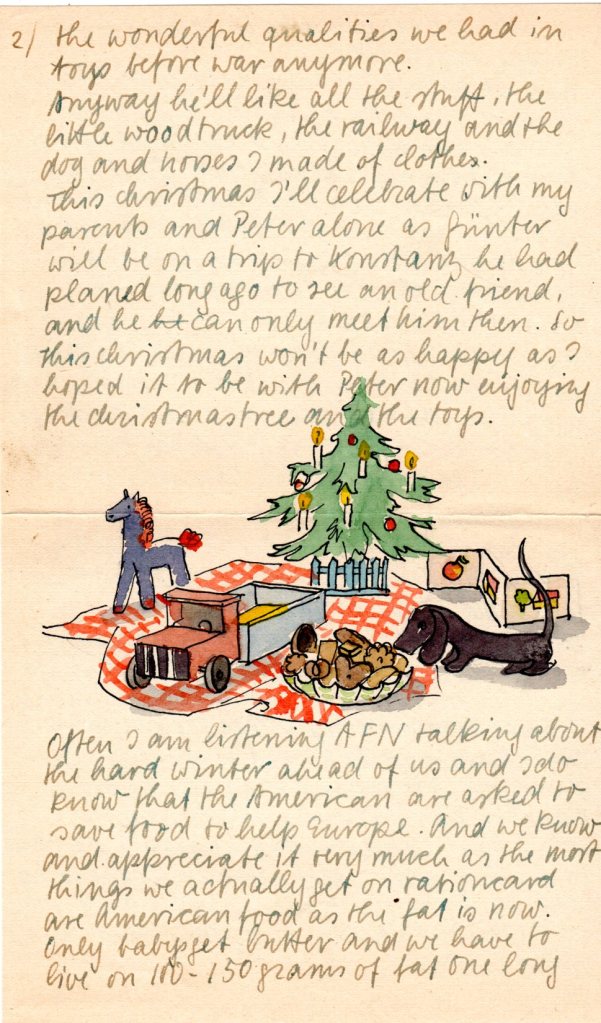 2/ the wonderful qualities we had in
toys before war anymore.
Anyway he'll like all the stuff, the
little wood truck, the railway and the
dog and horses I made of clothes.
This christmas I'll celebrate with my
parents and Peter alone as Günter
will be on a trip to Konstanz he had
planed long ago to see an old friend,
and he he can only meet him then. So
this christmas won't be as happy as I
hoped it to be with Peter now enjoying
the christmastree and the toys.
Often I am listening AFN talking about
the hard winter ahead of us and I do
know that the American are asked to
save food to help Europe. And we know
and appreciate it very much as the most
things we actually get on rationcard
are American food as the fat is now.
Only babys get butter and we have to
live on 100-150 grams of fat one long